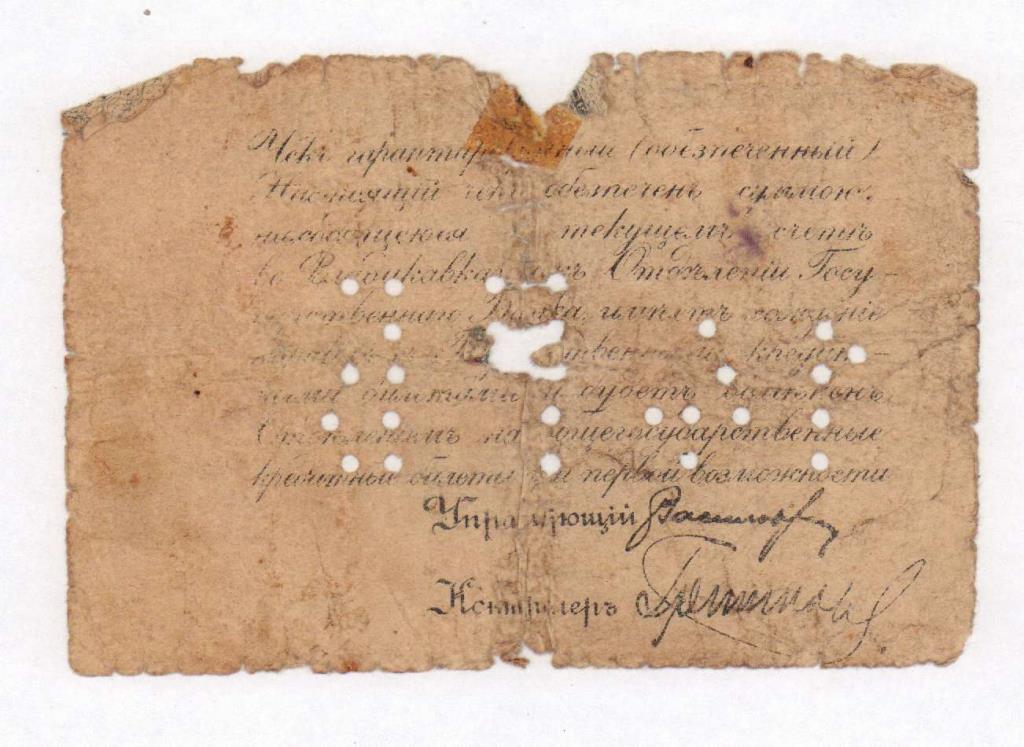 Чекъ гарантированный (обезпеченный)
Настоящий чекъ обезпеченъ суммою,
находящеюся текущемъ счету
во Владикавказскомъ Отдѣленіи Госу-
дарственнаго Банка, имѣетъ хожденіе
кредит-
ными билетами и будетъ
Отдѣленіемъ на общегосударственные
кредитные билеты при первой возможности
Управляющій
Контролеръ